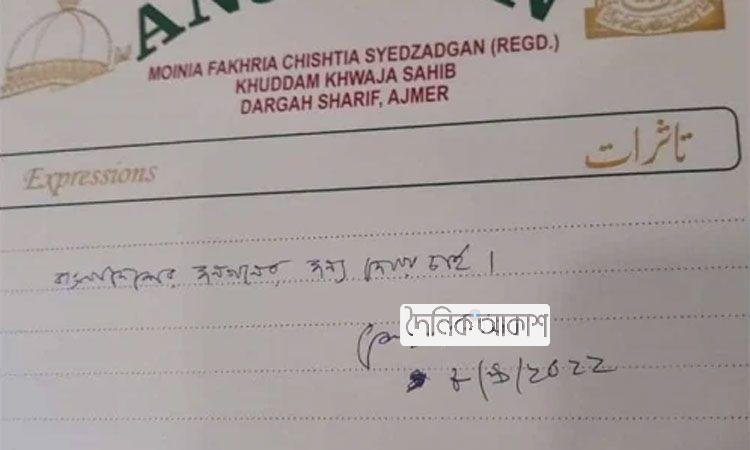 AN
MOINIA FAKHRIA CHISHTIA SYEDZADGAN (REGD.)
KHUDDAM KHWAJA SAHIB
DARGAH SHARIF, AJMER
Expressions تاثرات
বাংলাদেশের জনগণের জন্য দোয়া চাই।
দৈনিক আকাশ
৮/৯/২০২২